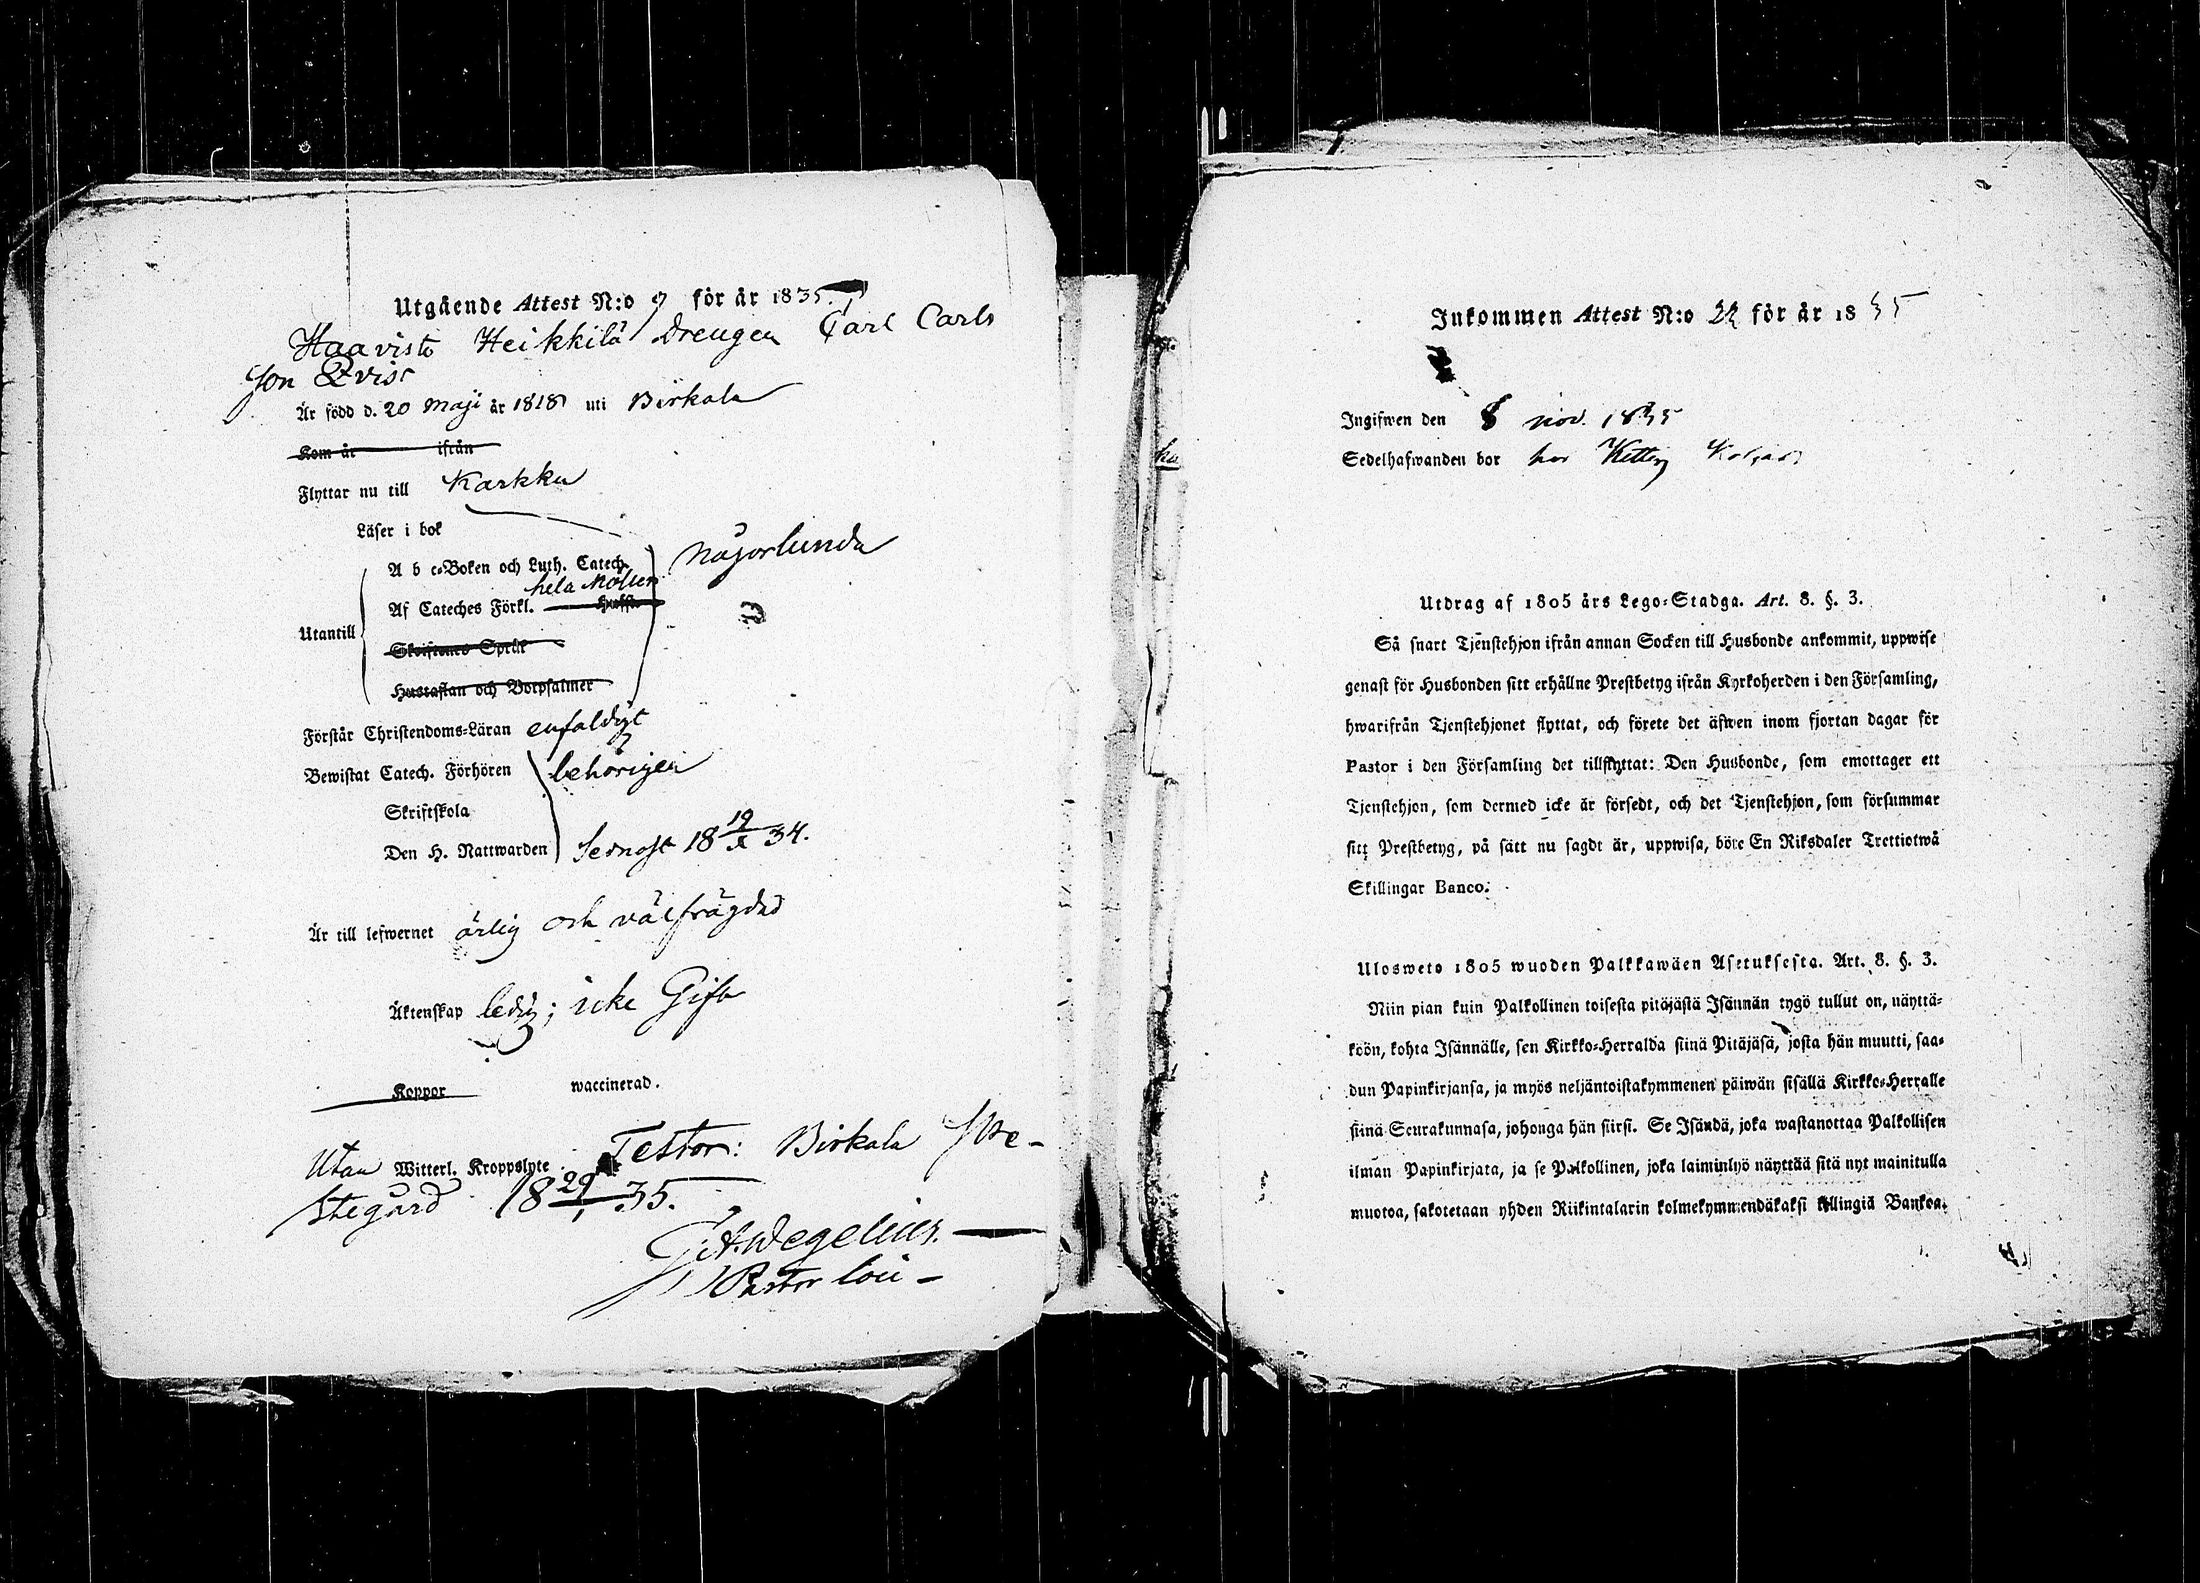 Utgående Attest N:o 9 för år 1835.
Haavisto Heikkilä Drengen Carl Carls
son Qvist
Är född d. 20 Maji år 1818 uti Birkala
Kom år ifrån
Flyttar nu till Karkku
Läser i bok
A b c-Boken och Luth. Catech. någorlunda
hela Möller
Af Cateches Förkl.
Utantill
Skriftenes Språk
Hustaflan och Botpsalmer
Förstår Christendoms-Läran enfaldigt
Bewistat Catech. Förhören behörigen
Skriftskola
Den H. Nattwarden senast 18 19/X 34.
Är till lefwernet ärlig och välfrägdad
Äktenskap ledig; icke Gift
Koppor waccinerad.
Utan Witterl. Kroppslyte Testor: Birkala Pre-
stegård 18 29/1 35.
Wegelius.
Pastor loci
Inkommen Attest N:o 22 för år 1835
Ingifwen den 8 nov. 1835
Sedelhafwanden bor hos
Utdrag af 1805 års Lego-Stadga. Art. 8. §. 3.
Så snart Tjenstehjon ifrån annan Socken till Husbonde ankommit, uppwise
genast för Husbonden sitt erhållne Prestbetyg ifrån Kyrkoherden i den Församling,
hwarifrån Tjenstehjonet flyttat, och förete det äfwen inom fjortan dagar för
Pastor i den Församling det tillflyttat: Den Husbonde, som emottager ett
Tjenstehjon, som dermed icke är försedt, och det Tjenstehjon, som försummar
sitt Prestbetyg, på sätt nu sagdt är, uppwisa, böte En Riksdaler Trettiotwå
Skillingar Banco.
Ulosweto 1805 wuoden Palkkawäen Asetuksesta. Art. 8. §. 3.
Niin pian kuin Palkollinen toisesta pitäjästä Isännän tygö tullut on, näyttä-
köön, kohta Isännälle, sen Kirkko-Herralda siinä Pitäjäsä, josta hän muutti, saa-
dun Papinkirjansa, ja myös neljäntoistakymmenen päiwän sisällä Kirkko-Herralle
siinä Seurakunnasa, johonga hän siirsi. Se Isändä, joka wastanottaa Palkollisen
ilman Papinkirjata, ja se Palkollinen, joka laiminlyö näyttää sitä nyt mainitulla
muotoa, sakotetaan yhden Riikintalarin kolmekymmendäkaksi killingiä Bankoa.